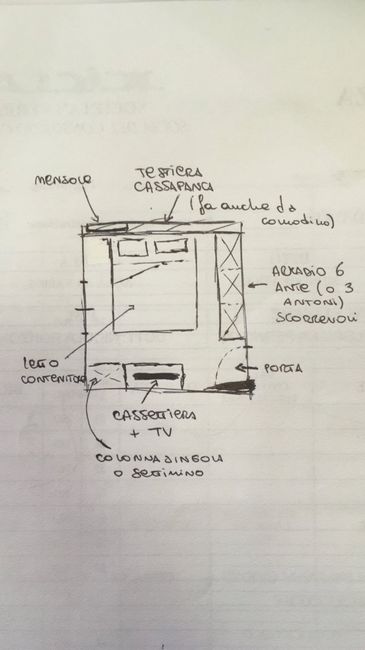 MENSOLE
TESTIERA
CASSAPANCA
(fa anche da
comodino)
ARMADIO 6
ANTE (O 3
ANTONI)
SCORREVOLI
LETTO
CONTENITORE
PORTA
CASSETTIERA
+ TV
COLONNA SINGOLA
O SETTIMINO